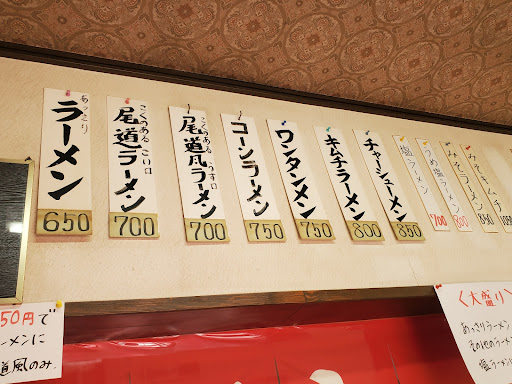 あっさり
ラーメン
650
こくうある こい口
尾道ラーメン
700
こくうある うす口
尾道風ラーメン
700
コーンラーメン
750
ワンタンメン
750
キムチラーメン
800
チャーシューメン
850
塩ラーメン
700
うめ塩ラーメン
800
みそラーメン
850
みそキムチ
50円で
ーメンに
道風のみ.
〈大盛り〉
あっさりラーメン
その他のラーメ
塩ラーメン